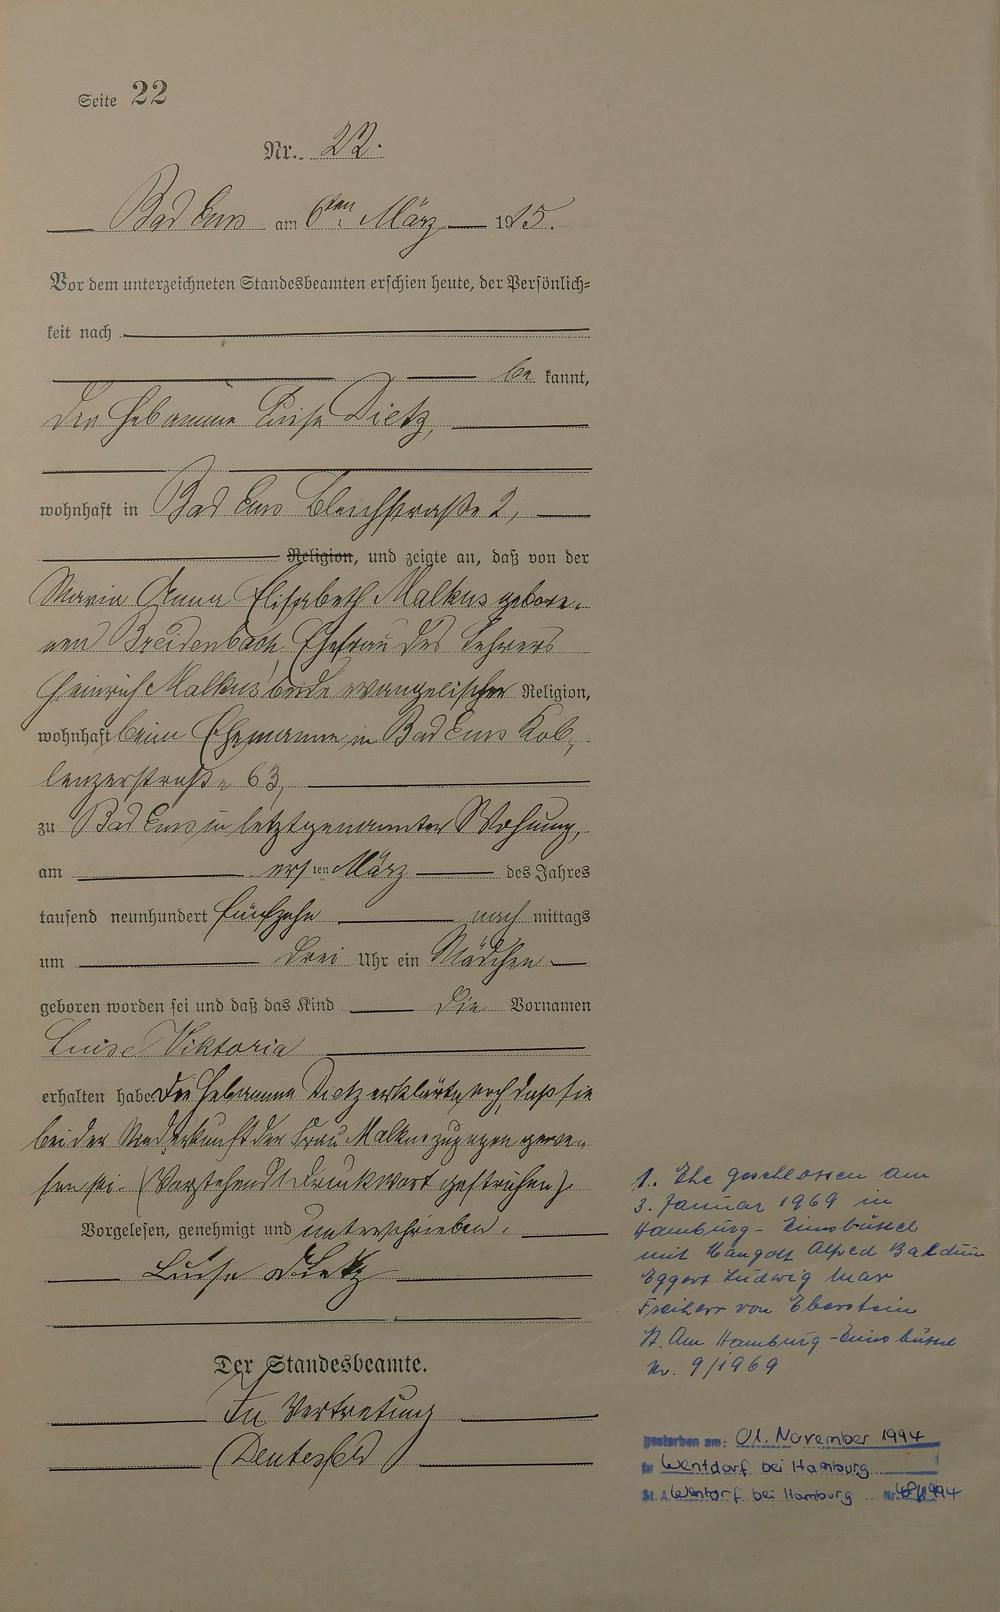 Seite 22
Nr. 22.
Bad Ems am 6ten März 1915.
Vor dem unterzeichneten Standesbeamten erschien heute, der Persönlich=
keit nach
be kannt,
die Hebamme Luise Dietz,
wohnhaft in Bad Ems Bleichstraße 2,
Religion, und zeigte an, daß von der
Maria Anna Elisabeth Malkus gebore-
nen Breidenbach, Ehefrau des Lehrers
Heinrich Malkus beide evangelischer Religion,
wohnhaft beim Ehemanne in Bad Ems Kob,
lenzerstraße 63,
zu Bad Ems in letztgenannter Wohnung,
am ersten März des Jahres
tausend neunhundert fünfzehn nach mittags
um drei Uhr ein Mädchen
geboren worden sei und daß das Kind die Vornamen
Luise Viktoria
erhalten habe. Die Hebamme Dietz erklärte noch, daß sie
bei der Niederkunft der Frau Malkus zugegen gewe-
sen sei. (Vorstehend 1 Druckwort gestrichen).
Vorgelesen, genehmigt und unterschrieben.
Luise Dietz
Der Standesbeamte.
In Vertretung
1. Ehe geschlossen am
3. Januar 1969 in
Hamburg-Eimsbüttel
mit Alfred Balduin
Eggert Ludwig Max
Freiherr von Eberstein
St. Am Hamburg-Eimsbüttel
Nr. 9/1969
gestorben am: 01. November 1994
in Wentdorf bei Hamburg
St. A. Wentorf bei Hamburg Nr.